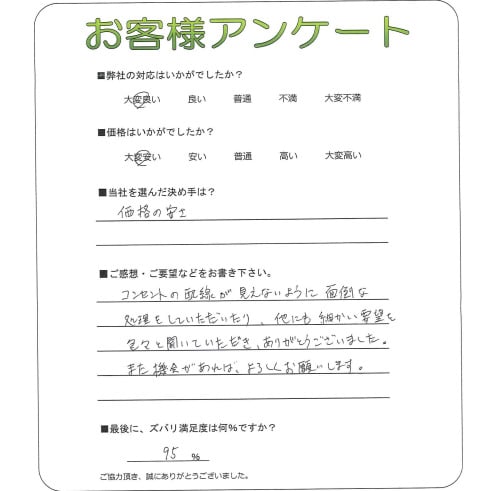 お客様アンケート
■弊社の対応はいかがでしたか？
大変良い 良い 普通 不満 大変不満
■価格はいかがでしたか？
大変安い 安い 普通 高い 大変高い
■当社を選んだ決め手は？
価格の安さ
■ご感想・ご要望などをお書き下さい。
コンセントの配線が見えないように面倒な
処理をしていただいたり、他にも細かい要望を
色々と聞いていただき、ありがとうございました。
また機会があれば、よろしくお願いします。
■最後に、ズバリ満足度は何%ですか？
95 %
ご協力頂き、誠にありがとうございました。